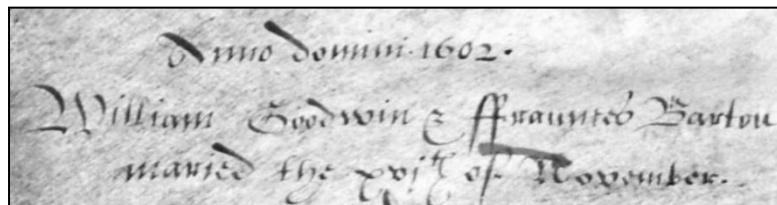 Anno domini 1602.
William Goodwin & ffraunces Barton
maried the xvjth of November.